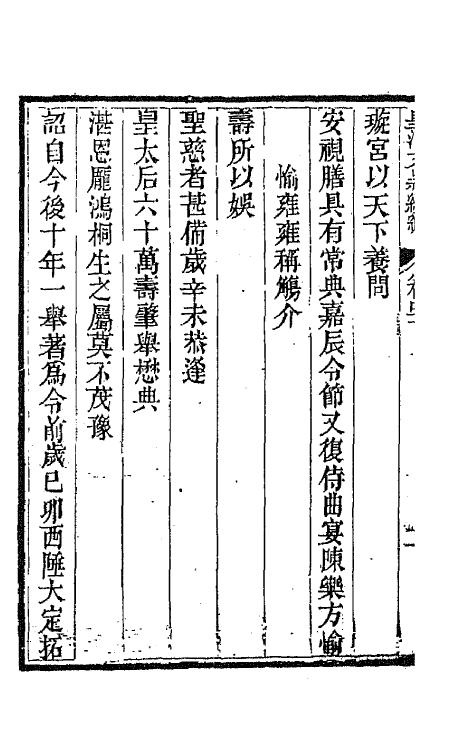 璇宮以天下養問
安視膳具有常典嘉辰令節又復侍曲宴陳樂方愉
愉雍雍稱觴介
壽所以娛
聖慈者甚備歲辛未恭逢
皇太后六十萬壽肇舉懋典
湛恩龐鴻桐生之屬莫不茂豫
詔自今後十年一舉著為令前歲己卯西陲大定拓